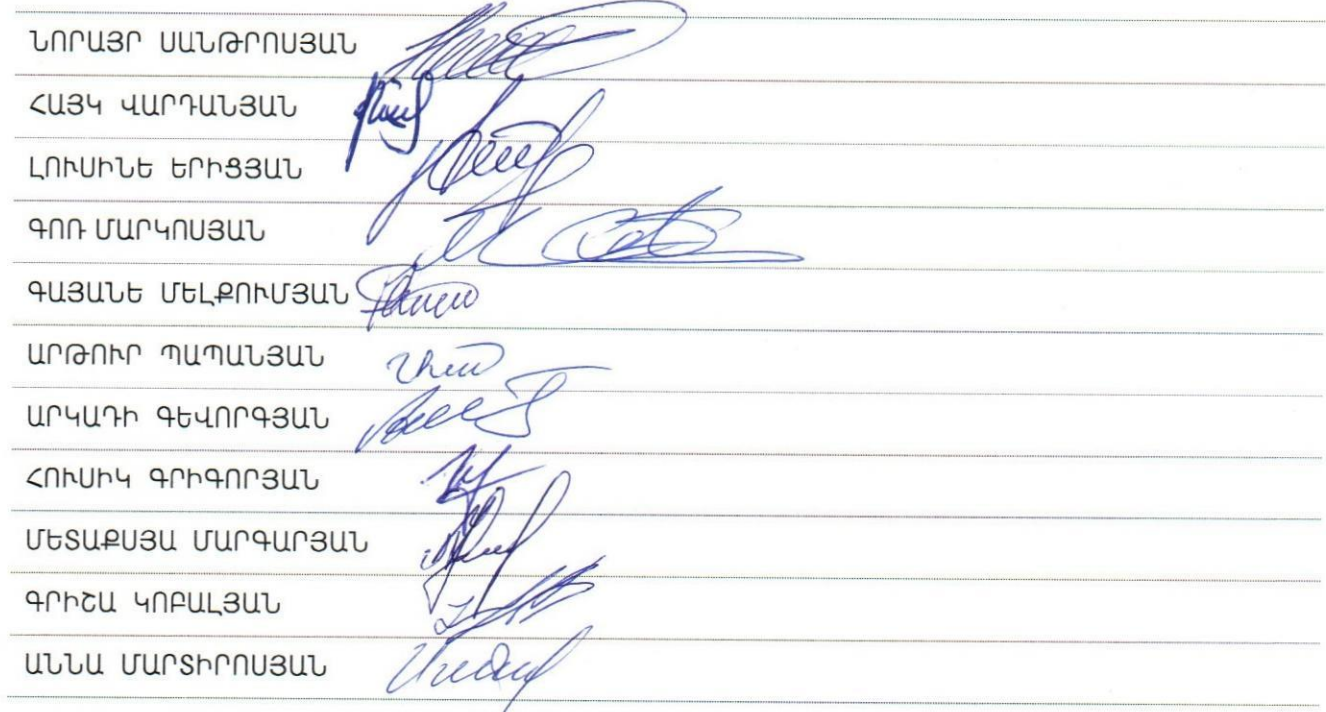 ՆՈՐԱՅՐ ՍԱՆԹՐՈՍՅԱՆ
ՀԱՅԿ ՎԱՐԴԱՆՅԱՆ
ԼՈՒՍԻՆԵ ԵՐԻՑՅԱՆ
ԳՈՌ ՄԱՐԿՈՍՅԱՆ
ԳԱՅԱՆԵ ՄԵԼՔՈՒՄՅԱՆ
ԱՐԹՈՒՐ ՊԱՊԱՆՅԱՆ
ԱՐԿԱԴԻ ԳԵՎՈՐԳՅԱՆ
ՀՈՒՍԻԿ ԳՐԻԳՈՐՅԱՆ
ՄԵՏԱՔՍՅԱ ՄԱՐԳԱՐՅԱՆ
ԳՐԻՇԱ ԿՈԲԱԼՅԱՆ
ԱՆՆԱ ՄԱՐՏԻՐՈՍՅԱՆ